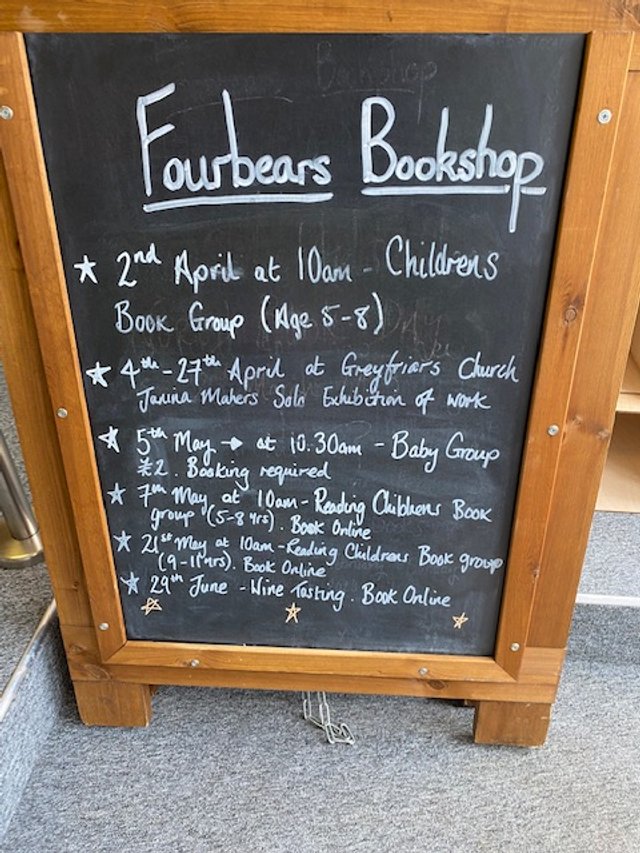 Fourbears Bookshop
2nd April at 10am - Childrens
Book Group (Age 5-8)
4th - 27th April at Greyfriars Church
Janina Mahers Solo Exhibition of work
5th May → at 10.30am - Baby Group
£2. Booking required
7th May at 10am - Reading Childrens Book
group (5-8 yrs). Book Online
21st May at 10am - Reading Childrens Book group
(9-11yrs). Book Online
29th June - Wine Tasting. Book Online